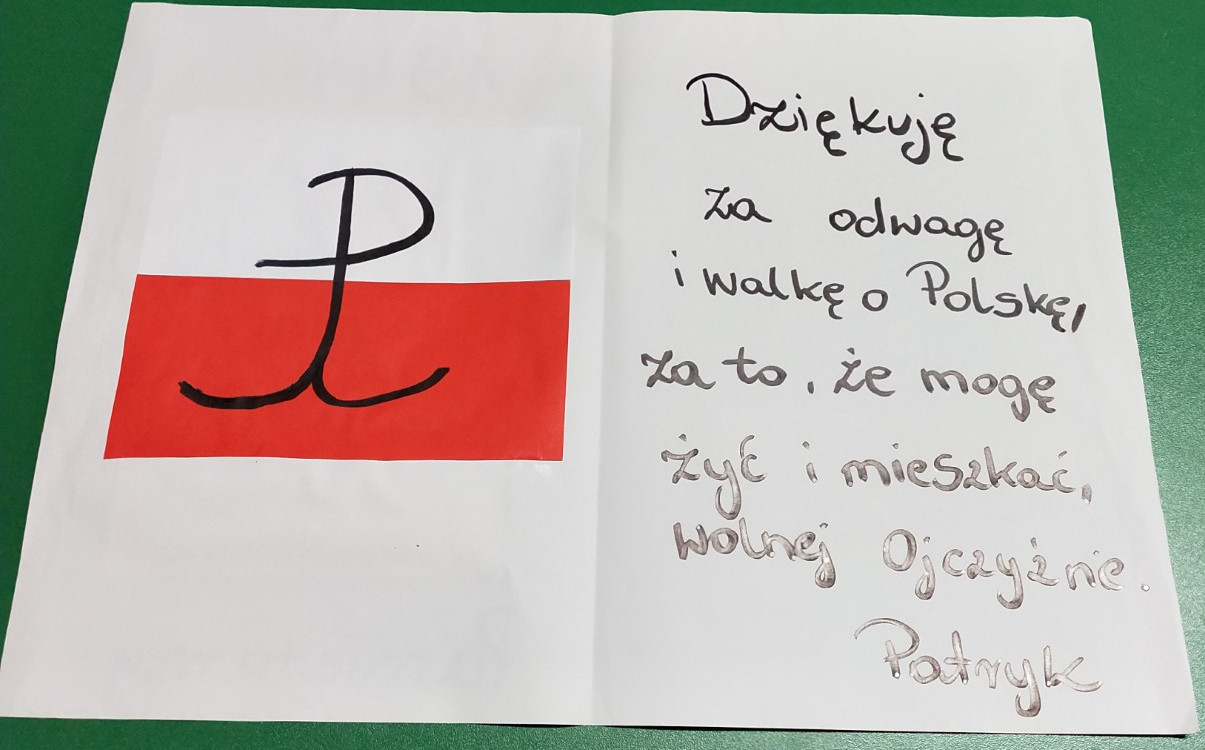 Dziękuję
za odwagę
i walkę o Polskę,
za to, że mogę
żyć i mieszkać,
wolnej Ojczyźnie.
Patryk